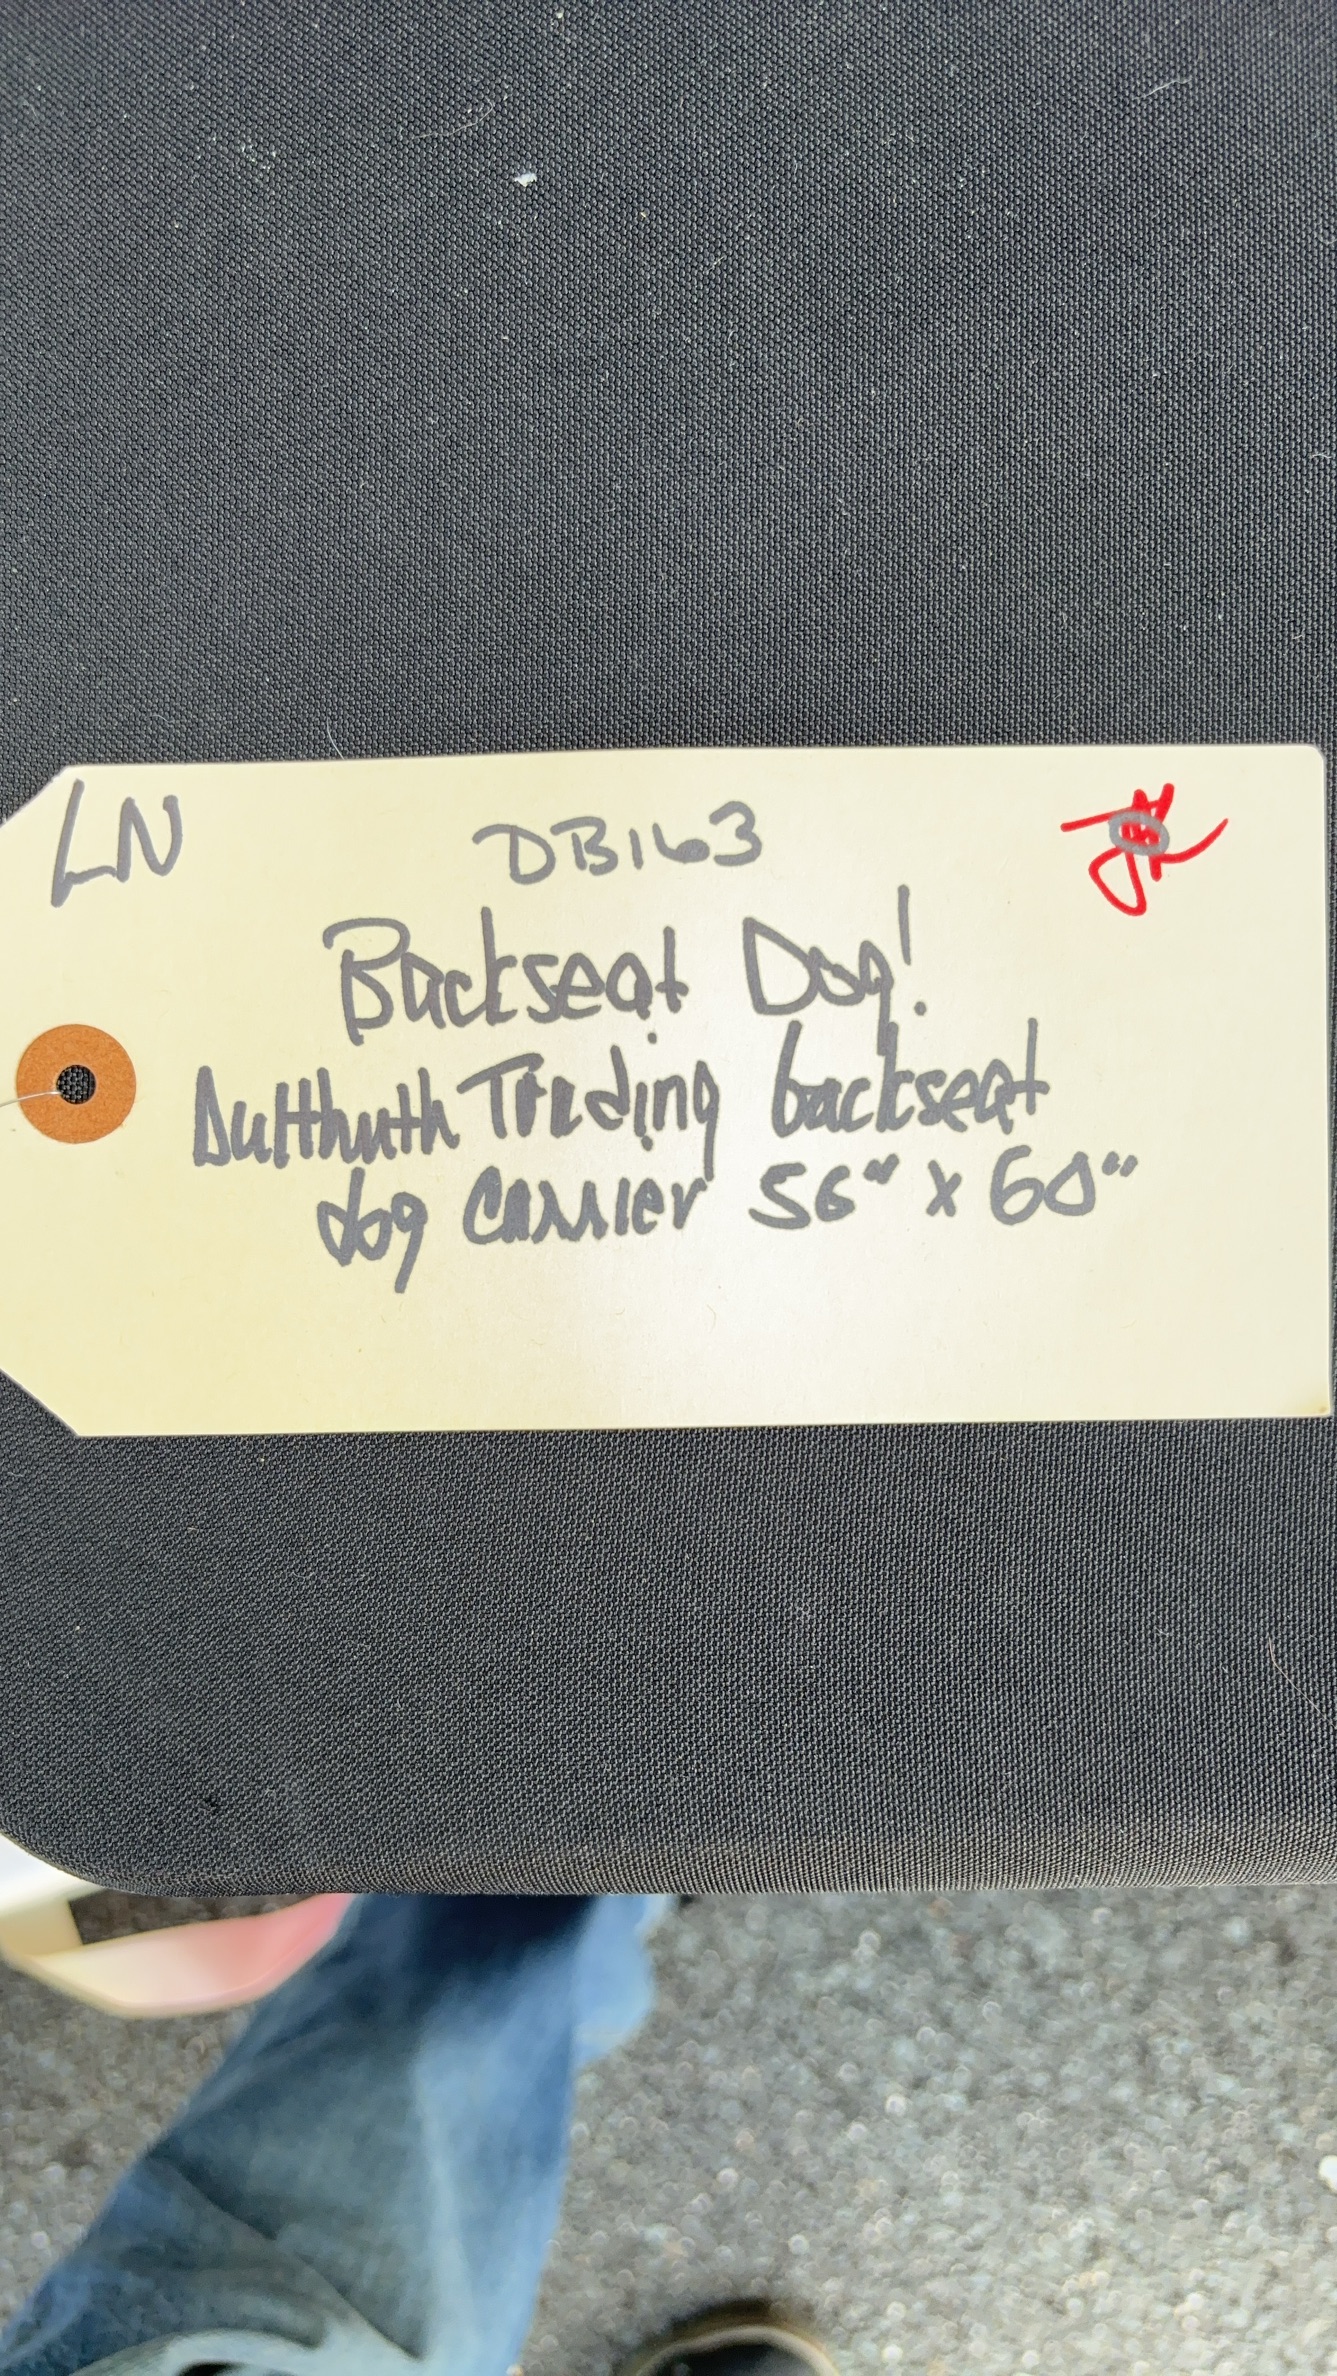 LN DB163
Backseat Dog!
Dutthuth Trading backseat
dog carrier 56" x 60"